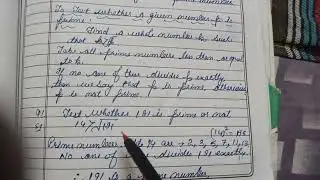 To Test whether a given number p is
prime:
Find a whole number k such
that k>√p
Take all prime numbers less than or equal
to k.
If no one of these divides p exactly
then we say that p is prime, otherwise
p is not prime.
Test whether 191 is prime or not
14>√191
(14)² = 196
Prime numbers 14 are → 2, 3, 5, 7, 11, 13
No one of divides 191 exactly.
∴ 191 is a prime number